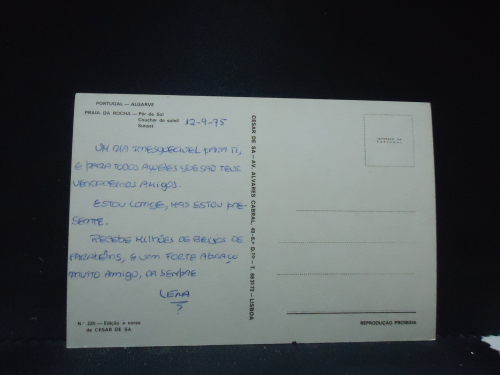 PORTUGAL — ALGARVE
PRAIA DA ROCHA — Pôr do Sol
Coucher de soleil
Sunset
12-9-75
UM DIA INESQUECIVEL PARA TI,
E PARA TODOS AQUELES QUE SÃO TEUS
VERDADEIROS AMIGOS.
ESTOU LONGE, MAS ESTOU PRE-
SENTE.
RECEBE MILHÕES DE BEIJOS DE
PARABÉNS, E UM FORTE ABRAÇO
MUITO AMIGO, DA SEMPRE
LENA
?
Edição e cores
de CESAR DE SA
CESAR DE SA — AV. ALVARES CABRAL, — LISBOA
REPRODUÇÃO PROIBIDA